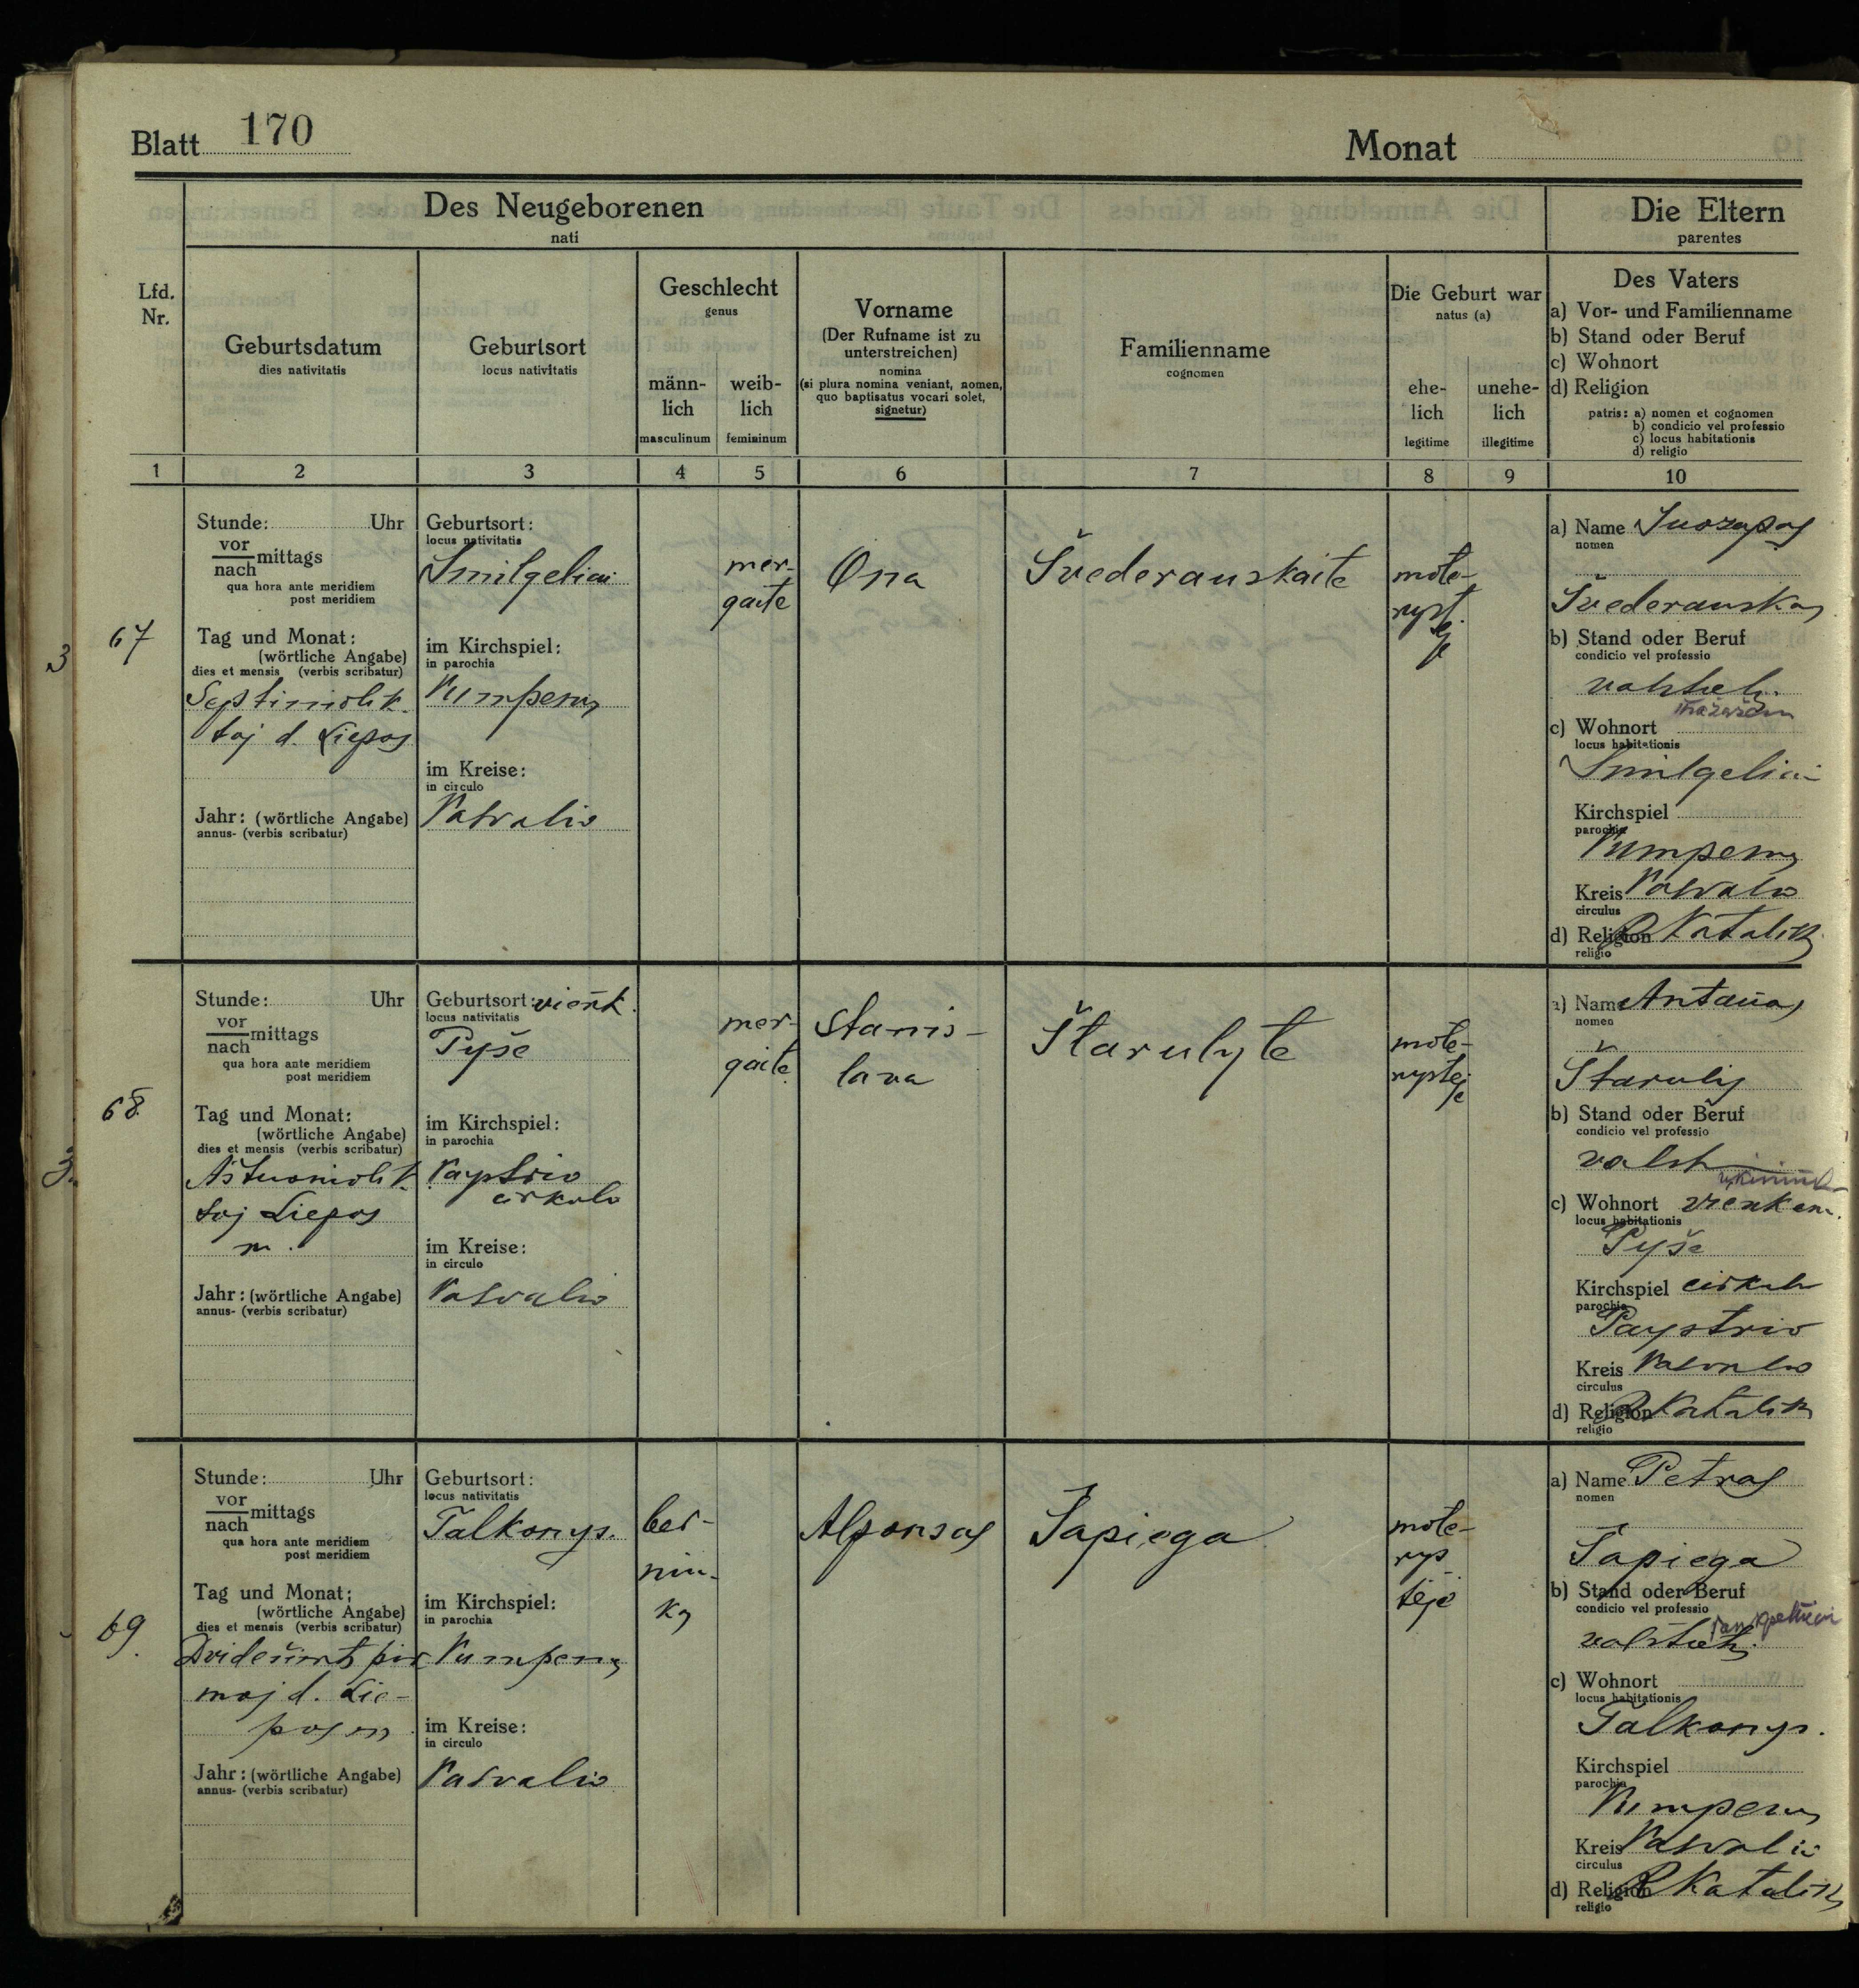 Blatt 170
Monat
Des Neugeborenen
nati
Die Eltern
parentes
Lfd.
Nr.
Geburtsdatum
dies nativitatis
Geburtsort
locus nativitatis
Geschlecht
genus
männ-
lich
masculinum
weib-
lich
femininum
Vorname
(Der Rufname ist zu
unterstreichen)
nomina
(si plura nomina veniant, nomen,
quo baptisatus vocari solet,
signetur)
Familienname
cognomen
Die Geburt war
natus (a)
ehe-
lich
legitime
unehe-
lich
illegitime
Des Vaters
a) Vor- und Familienname
b) Stand oder Beruf
c) Wohnort
d) Religion
patris: a) nomen et cognomen
b) condicio vel professio
c) locus habitationis
d) religio
1 2 3 4 5 6 7 8 9 10
3
67
Stunde: Uhr
vor
nach mittags
qua hora ante meridiem
post meridiem
Tag und Monat:
(wörtliche Angabe)
dies et mensis (verbis scribatur)
Septiniolik-
toj d. Liepos
Jahr: (wörtliche Angabe)
annus- (verbis scribatur)
Geburtsort:
locus nativitatis
Smilgeliai
im Kirchspiel:
in parochia
Pumpenų
im Kreise:
in circulo
Pasvalio
mer-
gaite
Ona
Švederauskaite
mote-
ryst
ėj
a) Name Juozapas
nomen
Švederauskas
b) Stand oder Beruf
condicio vel professio
valstieh.
mažažem
c) Wohnort
locus habitationis
Smilgeliai
Kirchspiel
parochia
Pumpenų
Kreis Pasvalio
circulus
d) Religion R Katalik
religio
3
68.
Stunde: Uhr
vor
nach mittags
qua hora ante meridiem
post meridiem
Tag und Monat:
(wörtliche Angabe)
dies et mensis (verbis scribatur)
Aštuoniolik
toj Liepos
m.
Jahr: (wörtliche Angabe)
annus- (verbis scribatur)
Geburtsort: vienk.
locus nativitatis
Pyše
im Kirchspiel:
in parochia
Paystrio
cirkulo
im Kreise:
in circulo
Pasvalio
mer-
gaite
Stanis-
lava
Štarulyte
mote-
rystėj
e
a) Name Antanas
nomen
Štarulis
b) Stand oder Beruf
condicio vel professio
valst
ukinink
c) Wohnort vienkem.
locus habitationis
Pyše
Kirchspiel cirkulo
parochia
Paystrio
Kreis Pasvalio
circulus
d) Religion R Katalik
religio
69.
Stunde: Uhr
vor
nach mittags
qua hora ante meridiem
post meridiem
Tag und Monat:
(wörtliche Angabe)
dies et mensis (verbis scribatur)
Dvidešimt pir
moj d. Lie-
pos m
Jahr: (wörtliche Angabe)
annus- (verbis scribatur)
Geburtsort:
locus nativitatis
Talkonys.
im Kirchspiel:
in parochia
Pumpenų
im Kreise:
in circulo
Pasvalio
ber-
niu-
kas
Alfonsas
Sapiega
mote-
rys
tėje
a) Name Petras
nomen
Sapiega
b) Stand oder Beruf
condicio vel professio
valstieh.
c) Wohnort
locus habitationis
Talkonys.
Kirchspiel
parochia
Pumpenų
Kreis Pasvalio
circulus
d) Religion R Katalik
religio